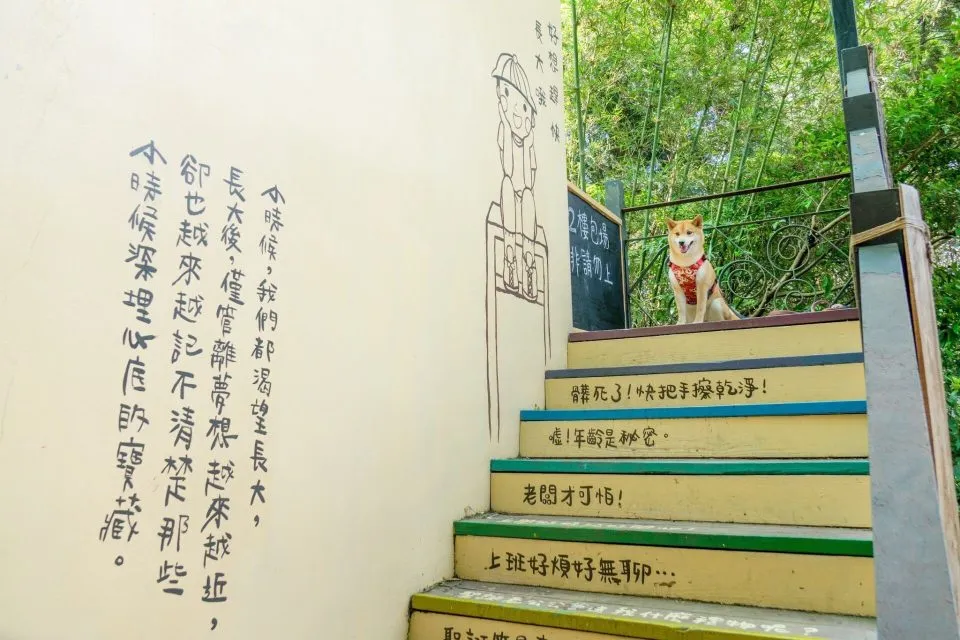 小時候，我們都渴望長大，
長大後，僅管離夢想越來越近，
卻也越來越記不清楚那些
小時候深埋心底的寶藏。
好想趕快
長大哦
2樓包場
非請勿上
髒死了！快把手擦乾淨！
噓！年齡是秘密。
老闆才可怕！
上班好煩好無聊…
老公公會送我什麼禮物呢？